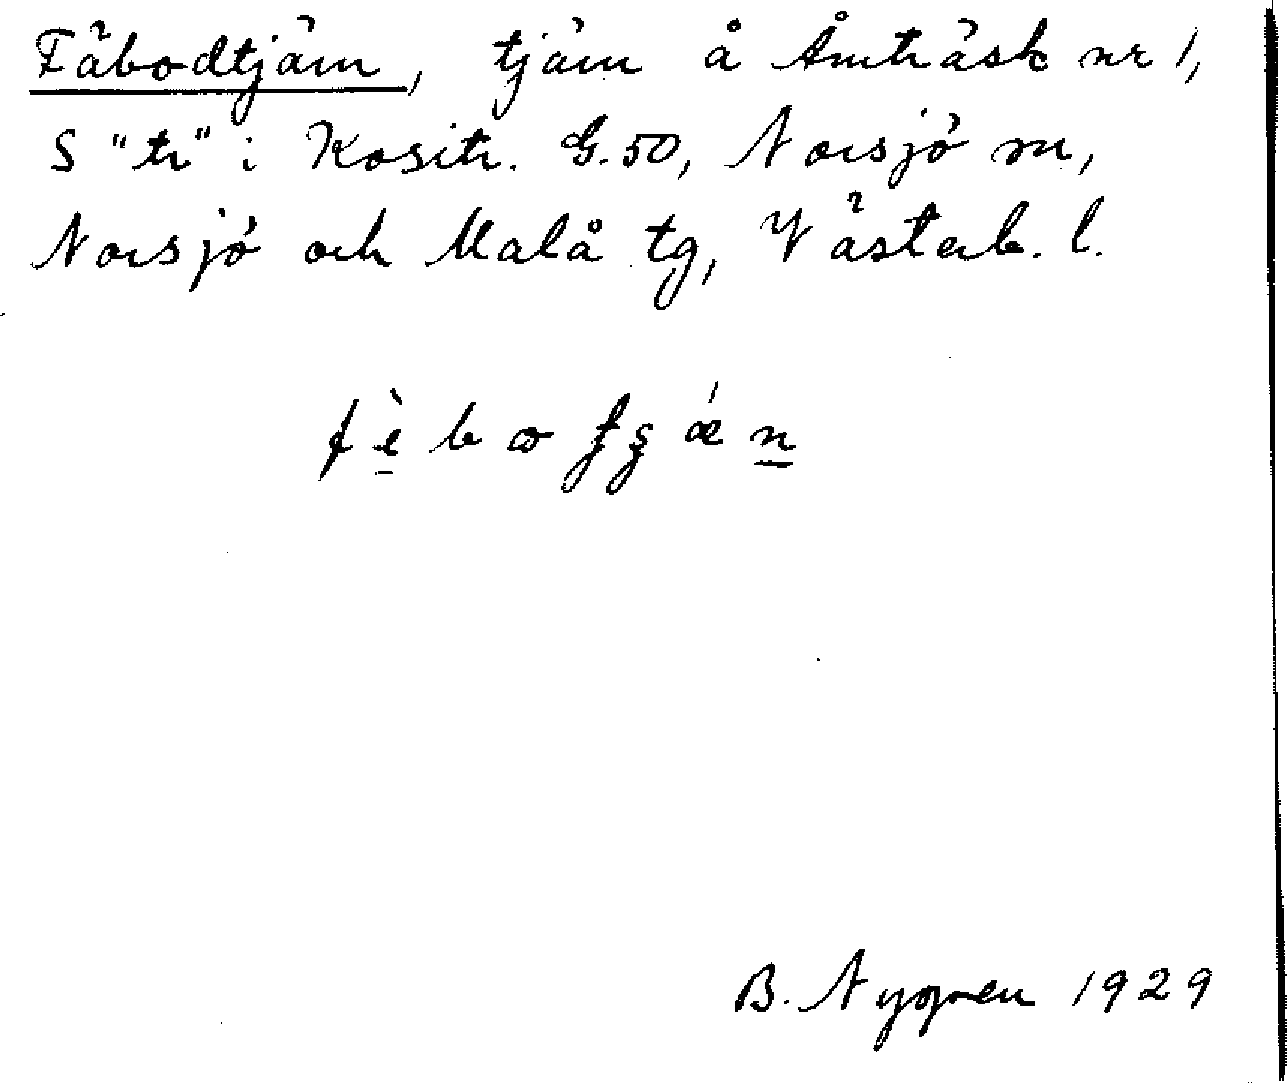 Fäbodtjärn, tjärn å Åmträsk nr 1,
S "tr" i Kositr. G.50, Norsjö sn,
Norsjö och Malå tg, Västerb. l.
B. Nygren 1929